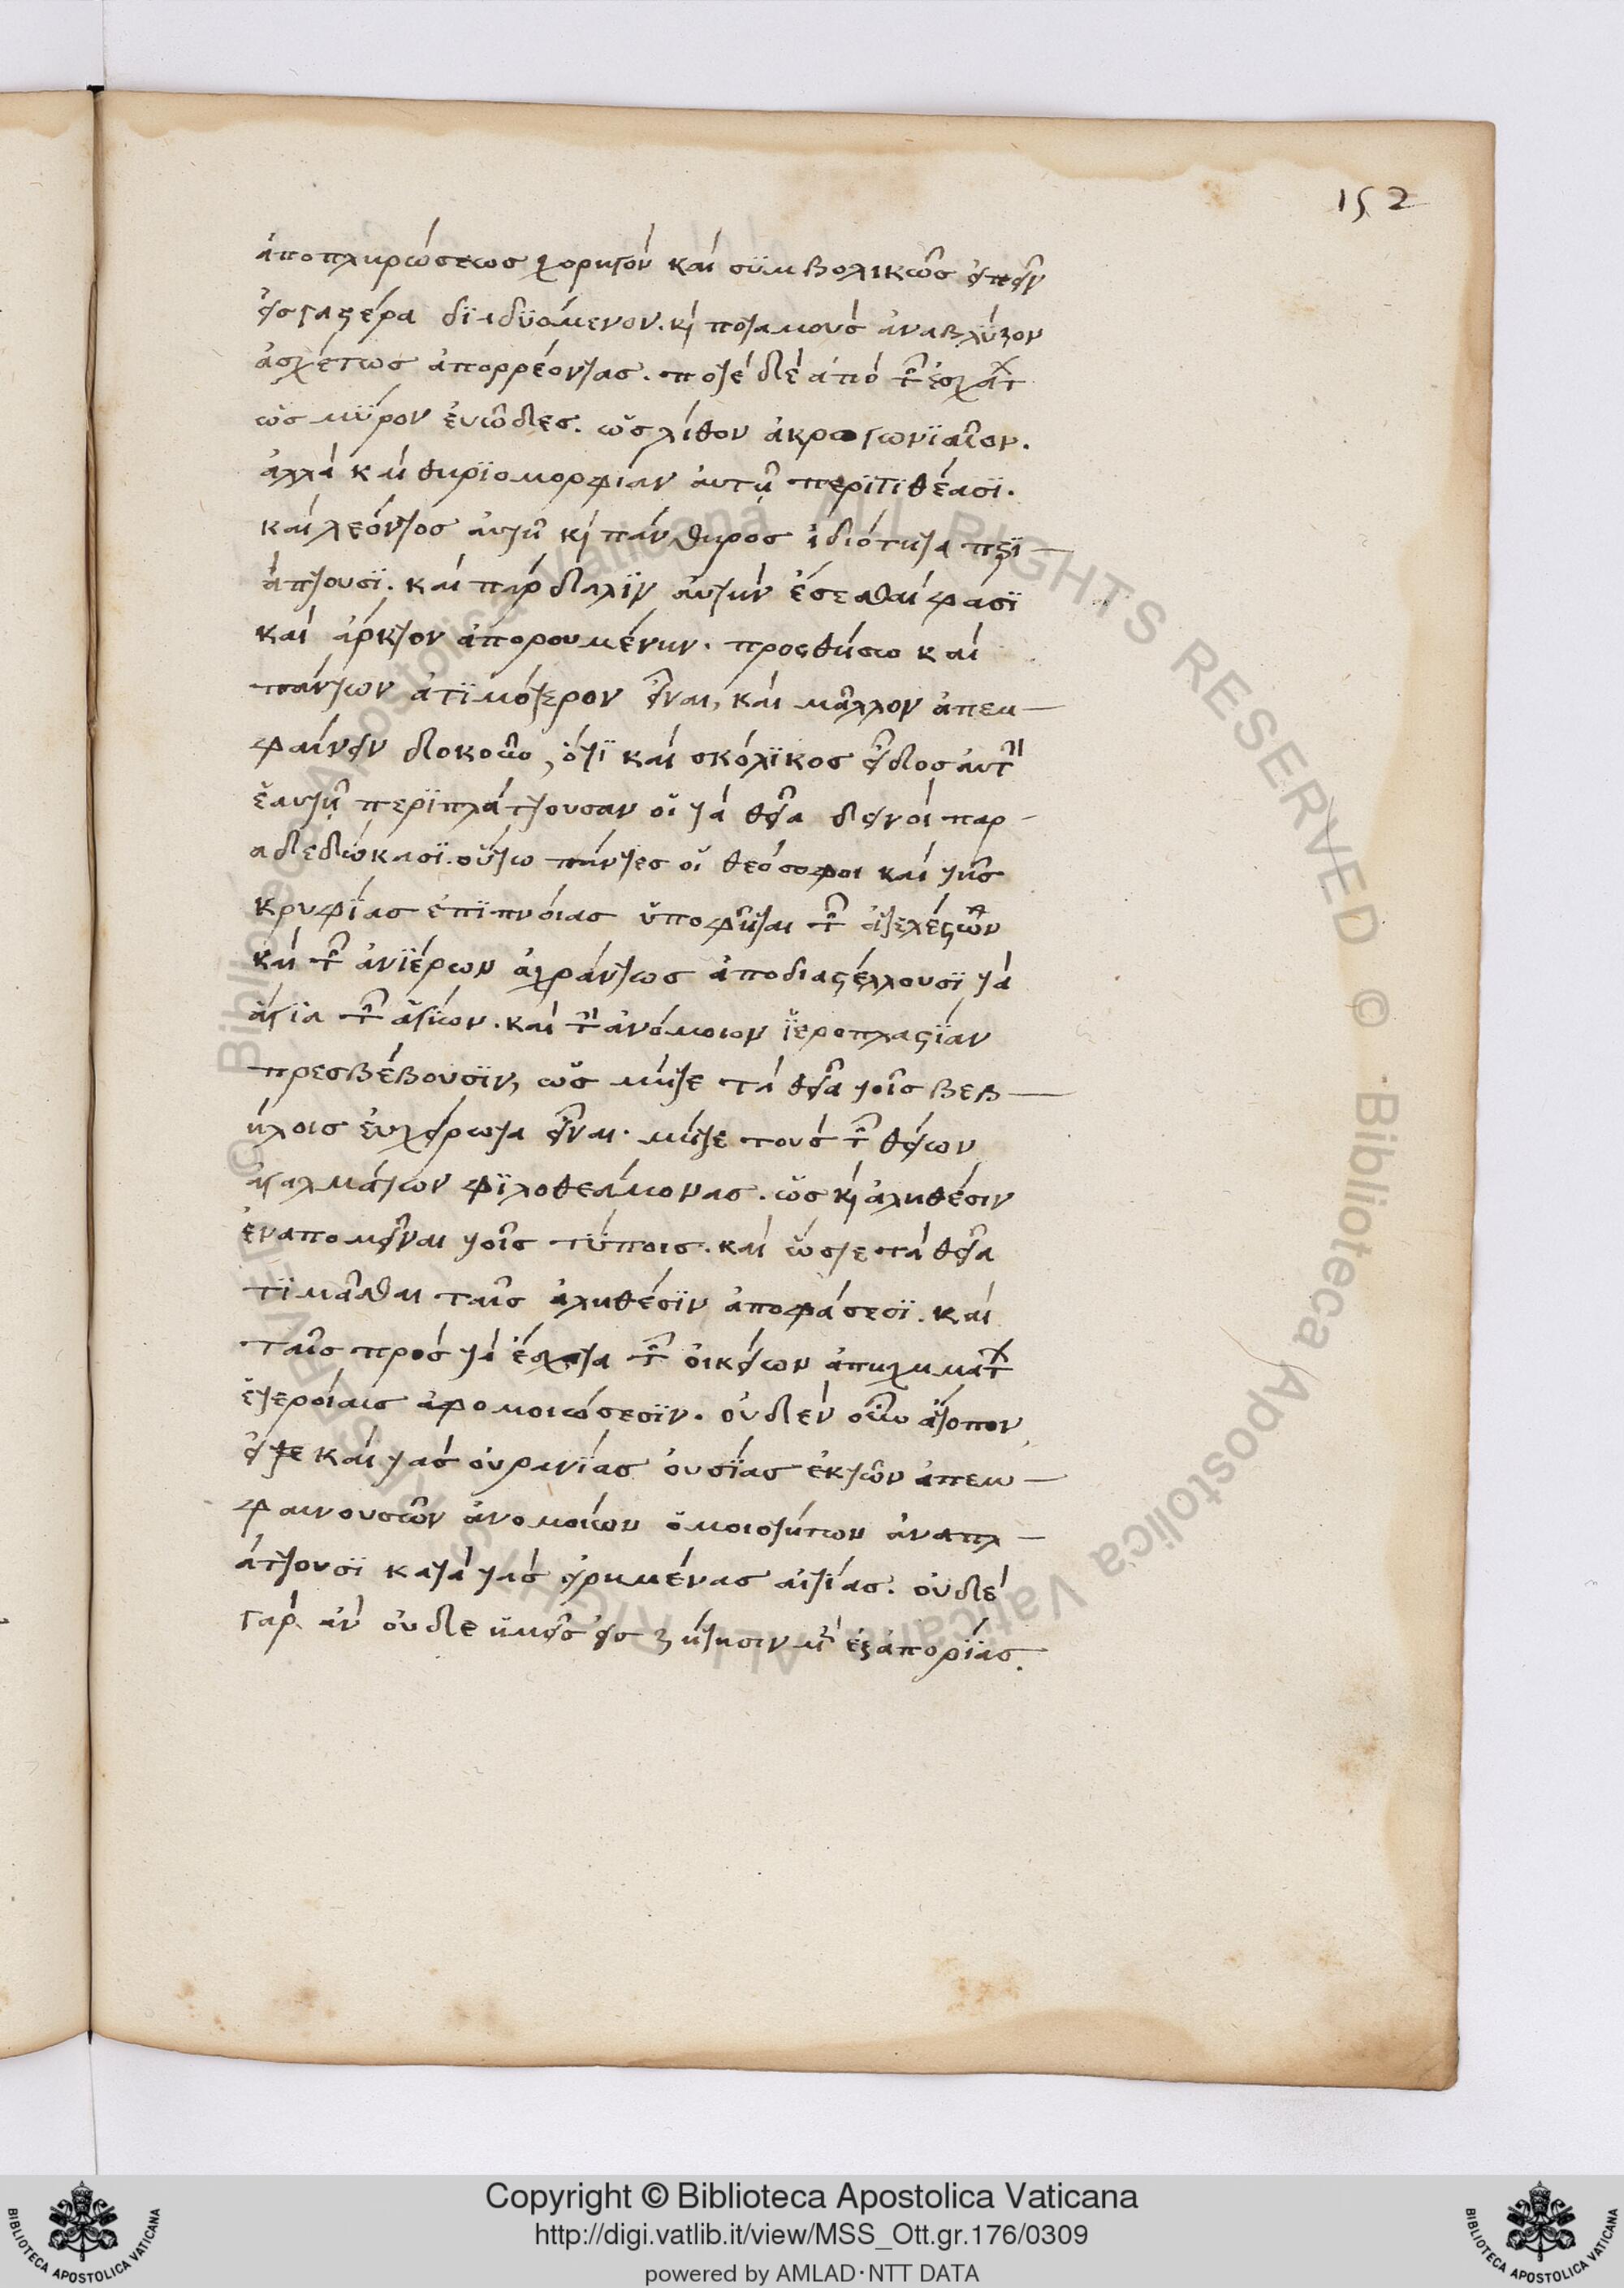 152
ἀποπληρώσεως χορηγὸν καὶ συμβολικῶς εἰπεῖν
εἰς γαστέρα διαδυόμενον. κὶ ποταμοὺς ἀναβλύζον
ἀσχέτως ἀπορρέοντας. ποτὲ δὲ ἀπὸ τῶν ἐσχάτων
ὡς μύρον ἐυῶδες. ὡς λίθον ἀκρογωνιαῖον.
ἀλλὰ καὶ θηριομορφίαν ἀυτῇ περιτιθέασϊ.
καὶ λεόντος ἀυτῇ κὶ πάνθηρος ἰδιότητα περϊ
άπτουσϊ. καὶ πάρδαλϊν ἀυτὴν ἔσεσθαί φασϊ
καὶ ἄρκτον ἀπορουμένην. προσθήσω καὶ
πάντων ἀτϊμότερον εἶναι, καὶ μᾶλλον ἀπεμ
φαίνειν δοκοῦν, ὅτϊ καὶ σκόλϊκος εἶδος ἀυτὴν
ἑαυτῇ περϊπλάττουσαν οἱ τὰ θεῖα δεινοὶ παρ
αδεδώκασϊ. οὕτω πάντες οἱ θεόσοφοι καὶ τῆς
κρυφίας ἐπϊπνοίας ὑποφῆται τῶν ἀτελέστων
καὶ τῶν ἀνϊέρων ἀχράντως ἀποδιαστέλλουσϊ τὰ
ἅγϊα τῶν ἁγίων. καὶ τὴν ἀνόμοιον ἱεροπλαστϊαν
πρεσβέβουσϊν, ὡς μήτε τὰ θεῖα τοῖς βεβ
ήλοις ἐυχείρωτα εἶναι. μήτε τοὺς τῶν θείων
ἀγαλμάτων φϊλοθεάμονας. ὡς κὶ ἀληθέσιν
ἐναπομεῖναι τοῖς τύποις. καὶ ὥστε τὰ θεῖα
τϊμᾶσθαι ταῖς ἀληθέσϊν ἀποφάσεσϊ. καὶ
ταῖς πρὸς τὰ ἔσχατα τῶν οἰκείων ἀπηχημάτων
ἑτεροίαις ἀφομοιώσεσϊν. οὐδὲν οὖν ἄτοπον
εἴτε καὶ τὰς οὐρανίας οὐσίας ἐκ τῶν ἀπεμ
φαινουσῶν ἀνομοίων ὁμοιοτήτων ἀναπλ
άττουσϊ κατὰ τὰς εἰρημένας αἰτίας. οὐδὲ
γὰρ ἂν οὐδε ἡμεῖς εἰς ζήτησιν μὲν ἐξ ἀπορίας.
© Biblioteca Apostolica Vaticana ALL RIGHTS RESERVED
Copyright © Biblioteca Apostolica Vaticana
http://digi.vatlib.it/view/MSS_Ott.gr.176/0309
powered by AMLAD·NTT DATA
BIBLIOTECA APOSTOLICA VATICANA
BIBLIOTECA APOSTOLICA VATICANA